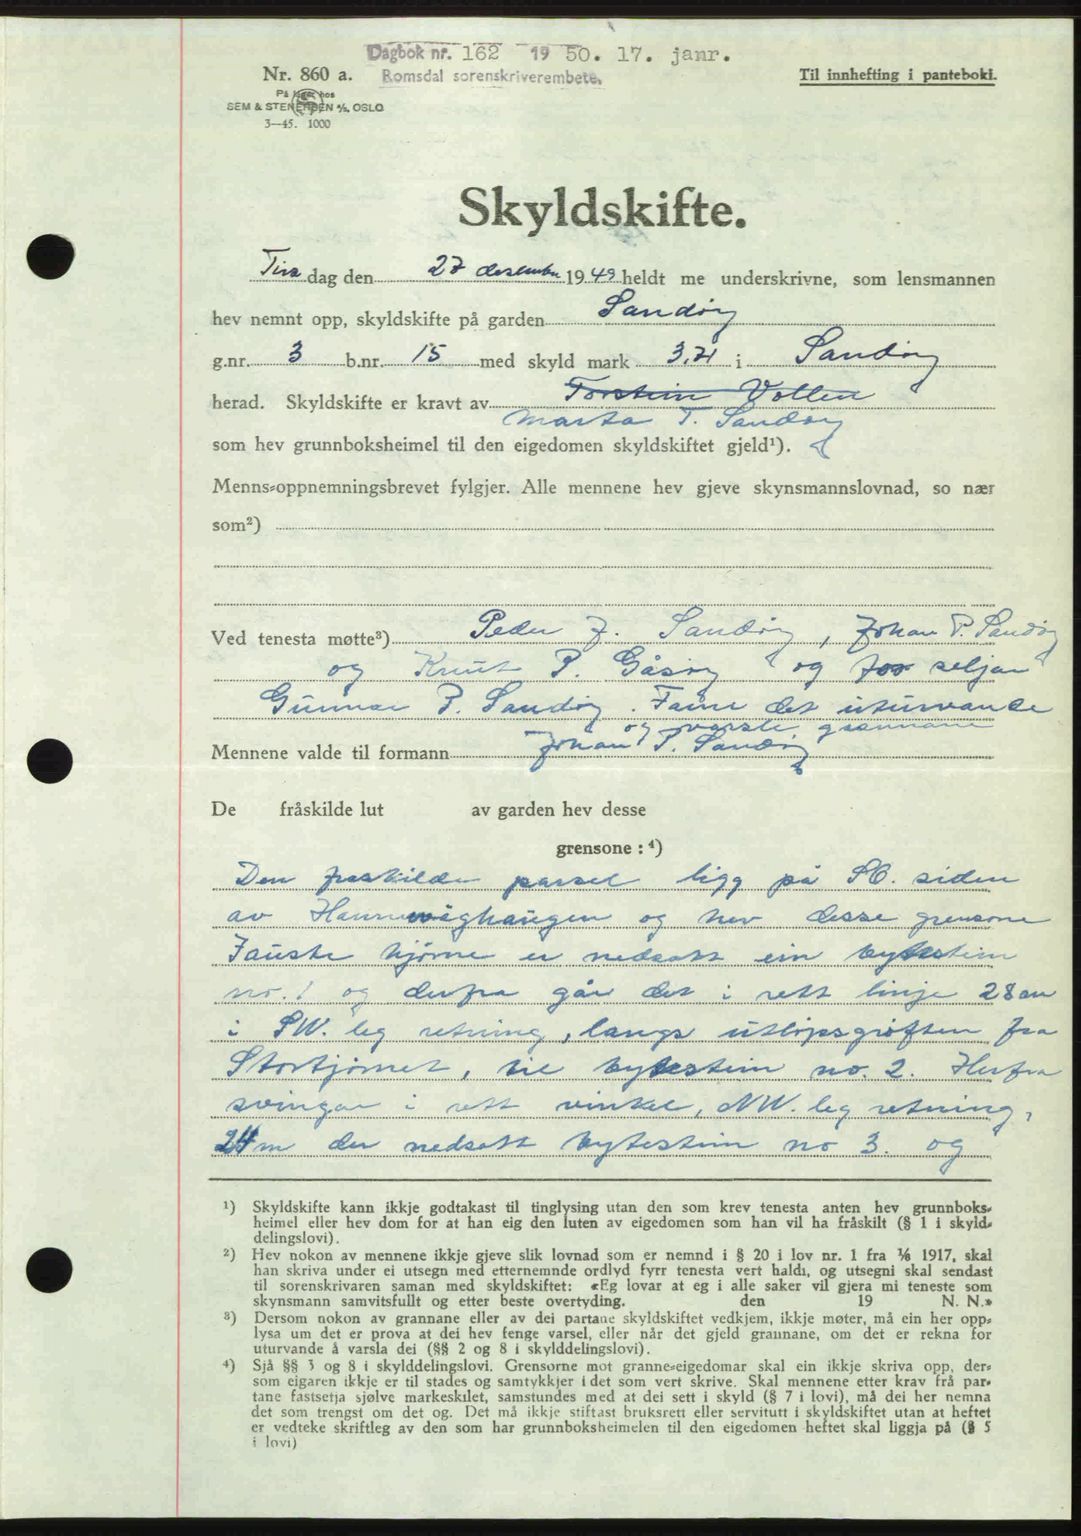 Dagbok nr. 162 1950. 17. janr.
Romsdal sorenskriverembete.
Nr. 860 a.
Til innhefting i panteboki.
På lager hos
SEM & STENERSEN A/S, OSLO
3—45. 1000
Skyldskifte.
Tirs dag den 27 desember 1949 heldt me underskrivne, som lensmannen
hev nemnt opp, skyldskifte på garden Sandøy
g.nr. 3 b.nr. 15 med skyld mark 3,21 i Sandøy
herad. Skyldskifte er kravt av Torstein Vollen
Marta T. Sandøy
som hev grunnboksheimel til den eigedomen skyldskiftet gjeld¹).
Menns-oppnemningsbrevet fylgjer. Alle mennene hev gjeve skynsmannslovnad, so nær
som²)
Ved tenesta møtte³) Peder J. Sandøy, Johan P. Sandøy
og Knut P. Gåsøy og for seljar
Gunnar P. Sandøy. Fann det uturvande
og varsle grannane
Mennene valde til formann Johan P. Sandøy
De fråskilde lut av garden hev desse
grensone : ⁴)
Den fraskilde parsel ligg på SO. siden
av Hamnevåghaugen og hev desse grensone
I auste hjørne er nedsatt ein bytestein
no. 1 og derfra går det i rett linje 28 m
i SW. leg retning, langs utløpsgrøften fra
Stortjørnet, til bytestein no. 2. Herfra
svingar i rett vinkel, NW. leg retning,
24 m der nedsatt bytestein no 3. og
¹) Skyldskifte kann ikkje godtakast til tinglysing utan den som krev tenesta anten hev grunnboks-
heimel eller hev dom for at han eig den luten av eigedomen som han vil ha fråskilt (§ 1 i skyld-
delingslovi).
²) Hev nokon av mennene ikkje gjeve slik lovnad som er nemnd i § 20 i lov nr. 1 fra ⅙ 1917, skal
han skriva under ei utsegn med etternemnde ordlyd fyrr tenesta vert haldi, og utsegni skal sendast
til sorenskrivaren saman med skyldskiftet: «Eg lovar at eg i alle saker vil gjera mi teneste som
skynsmann samvitsfullt og etter beste overtyding. den 19 N. N.»
³) Dersom nokon av grannane eller av dei partane skyldskiftet vedkjem, ikkje møter, må ein her opp-
lysa um det er prova at dei hev fenge varsel, eller når det gjeld grannane, om det er rekna for
uturvande å varsla dei (§§ 2 og 8 i skylddelingslovi).
⁴) Sjå §§ 3 og 8 i skylddelingslovi. Grensorne mot granne-eigedomar skal ein ikkje skriva opp, der-
som eigaren ikkje er til stades og samtykkjer i det som vert skrive. Skal mennene etter krav frå par-
tane fastsetja sjølve markeskilet, samstundes med at dei sett i skyld (§ 7 i lovi), må dei her nemna
det som trengst om det og. Det må ikkje stiftast bruksrett eller servitutt i skyldskiftet utan at heftet
er vedteke skriftleg av den som har grunnboksheimelen til den eigedomen heftet skal liggja på (§ 5
i lovi)